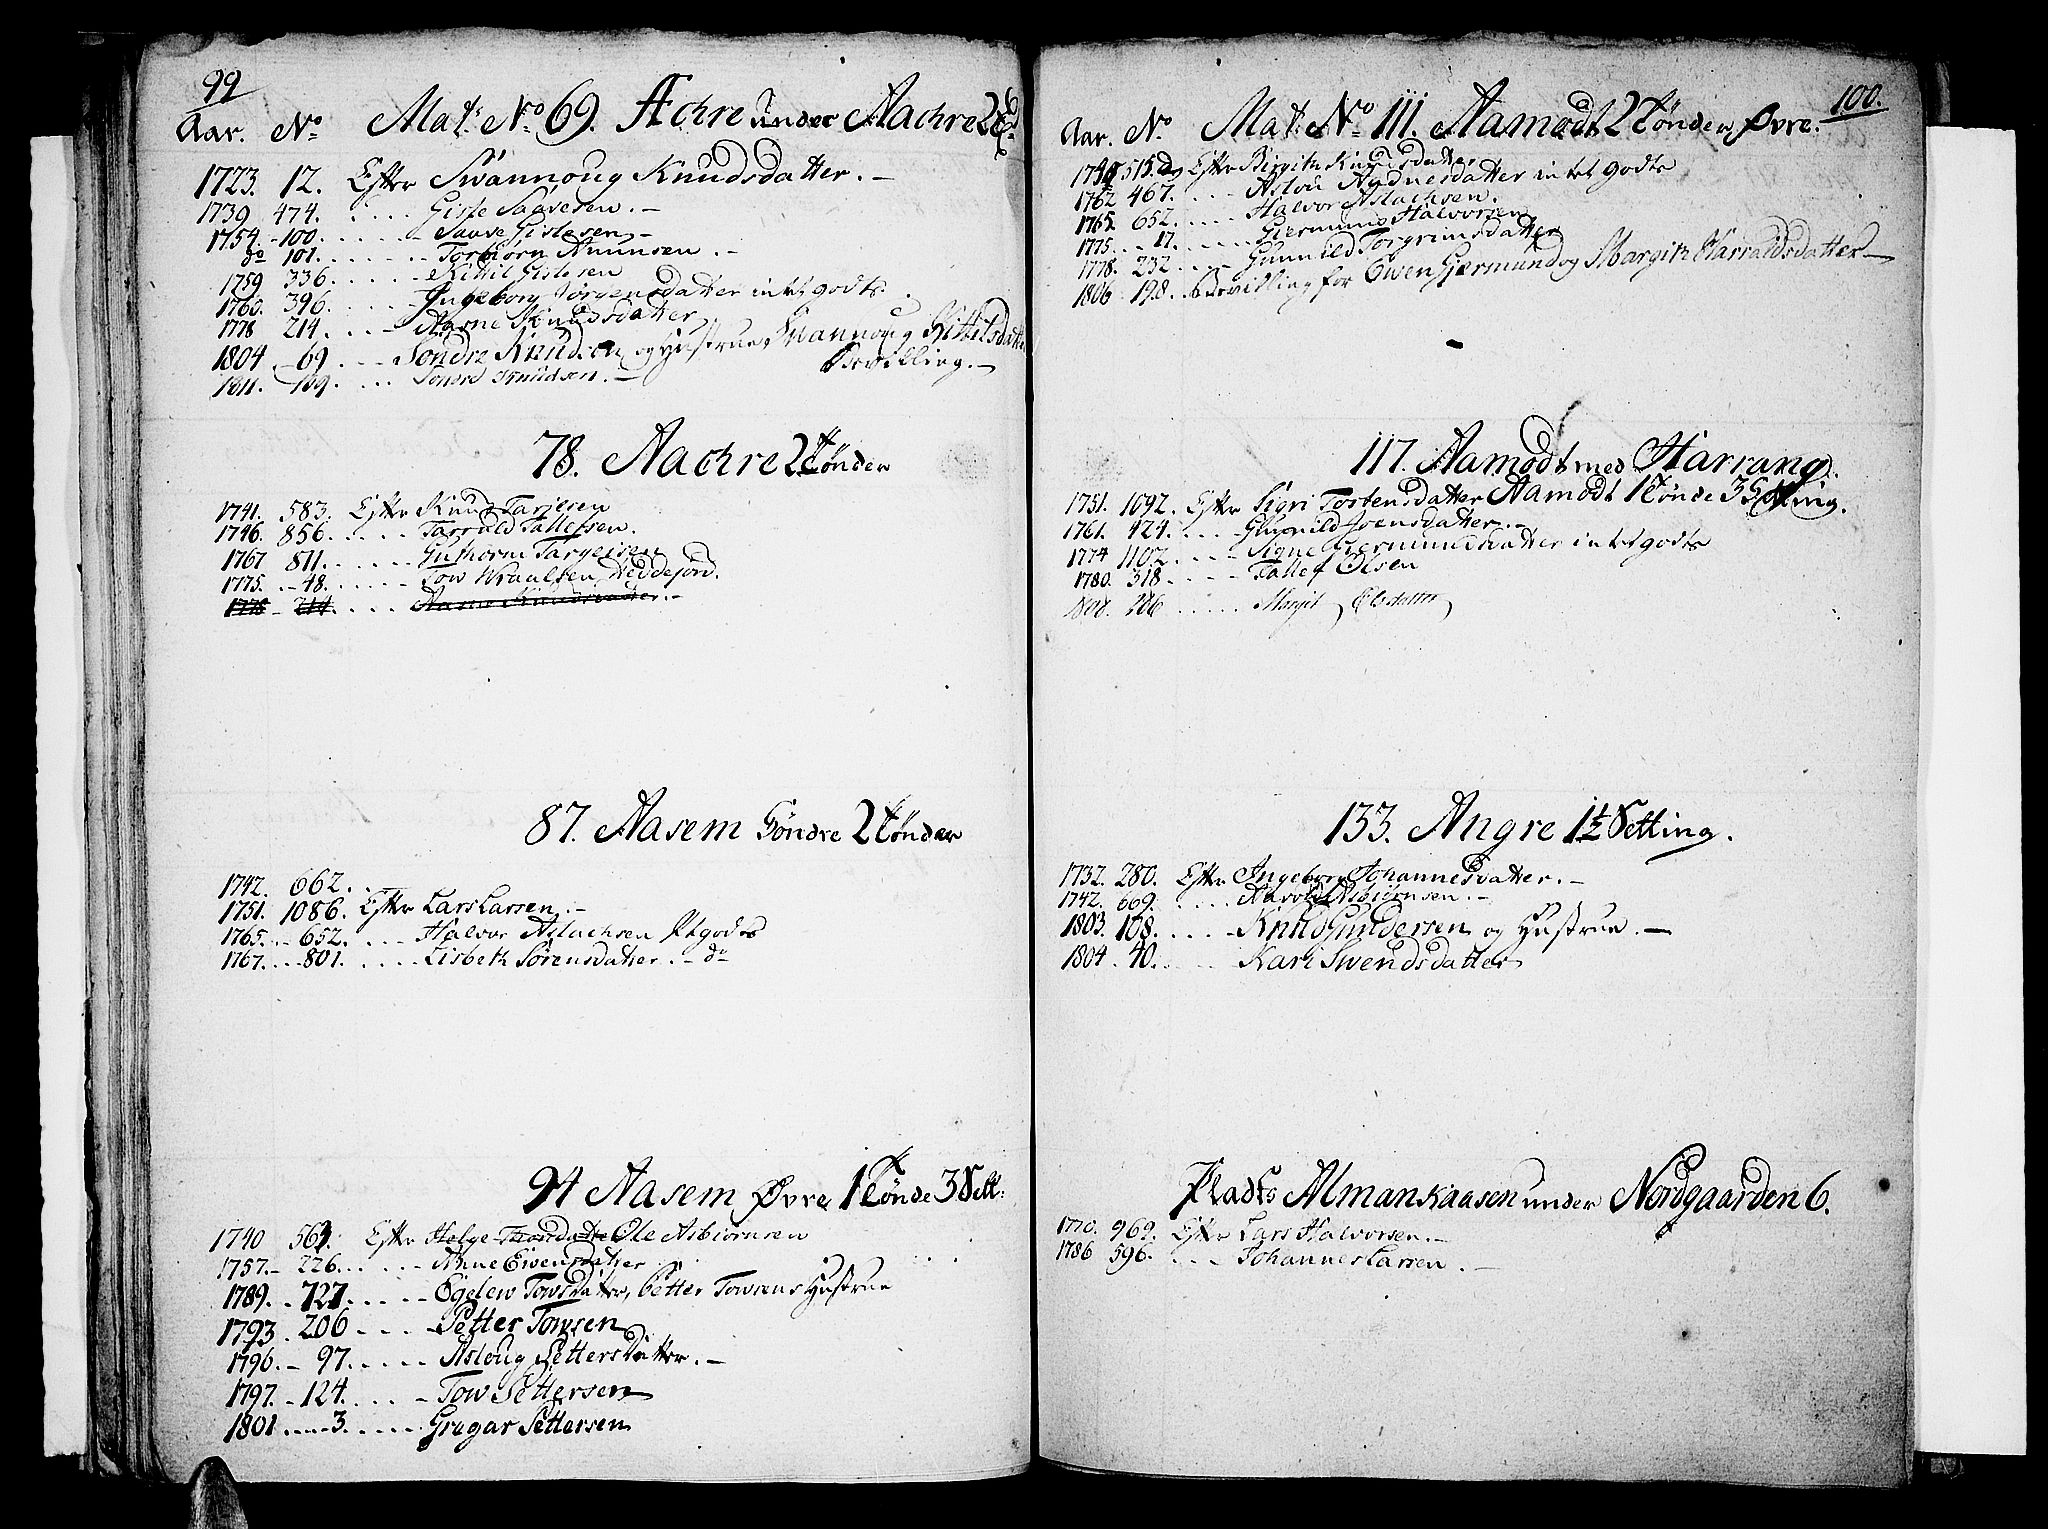 99
Aar. No Mat: No 69. Achre under Aachre
1723. 12. Efter Swannoug Knudsdatter. –
1739 474. . . . . Gisle Saavesen. –
1754. - 100. . . . . . . Saave Gislesen –
do 101. . . . . . . Torbiørn Amunsen . –
1759 336. . . . . Kittil Gislesen
1760. 396. . . . . Ingeborg Jørgensdatter intet godts.
1778 214. . . . Aasne Knudsdatter
1804 69. . . . Søndre Knudsen og Hustrue Swannoug Kittelsdatter
Bevilling. –
1811. 159. . . . Søndre Knudsen. –
78. Aachre 2 Tønder
1741. 583. Efter Knud Tarjesen
1746. 856. . . . . . Tarrald Tallefsen.
1767 811. . . . . . Guthorm Targeisen
1775. . - 48. . . . . . Tow Wraalsen, Heddejord.
1778 - 214. . . . . Aasne Knudsdatter. –
87. Aasem Søndre 2 Tønder
1742. 662. . .
1751. 1086. Efter Lars Larsen. –
1765. . - 652. . . . Halvor Aslachsen Utgods
1767. . . . 801. . . . . . Lisbeth Sørensdatter. – do
94 Aasem Øvre 1 Tønde 3 Sett:
1740 563. Efter Helge Tronsdatter Ole Asbiørnsen
1757. - 226. . . . . . Anne Eivensdatter
1789. . 727. . . . . . Egelew Towsdatter, Petter Towsens Hustrue
1793 . 206 . . . . Petter Towsen
1796. - 97. . . . . . Asloug Pettersdatter. –
1797. - 124. . . . . Tow Pettersen
1801 . . . . 3. . . . . . Gregar Pettersen
100.
Aar. No Mat: No 111. Aamodt 2 Tønder Øvre.
515. Efter Birgith Knudsdatter
1762 467. . . . Aslou Aadnesdatter intet godts
1765. 652. . . . . Halvor Aslachsen.
1775. . . 17. . . . . . Giermund Halvorsen
1778. 232. . . . Gunnild Torgrimsdatter
1806 198. Bevilling for Ewen Gjermund og Margith Harraldsdatter –
117. Aamodt med Harrang.
1751. 1092. Efter Sigri Tostensdatter Aamodt 1 Tønde 3 Setting.
1761. 424. . . . Gunnild Joensdatter. –
1774 1102. . . . . Signe Giermundsdatter intet godts
1780. 318 . . . . . Tallef Olsen
1808. 206 . . . . . . Margit Olsdatter
133. Angre 1½ Setting.
1732. 280. Efter Ingeborg Johannesdatter. –
1742. 669. . . . . . Aarold Asbiørnsen. –
1803. 108. . . . . . Knud Gundersen og Hustrue. –
1804 . 40. . . . . Kari Swendsdatter
Plads Almankaasen under Nordgaarden 6.
1770. 969. Efter Lars Halvorsen. –
1786 596. . . . Johannes Larsen . –